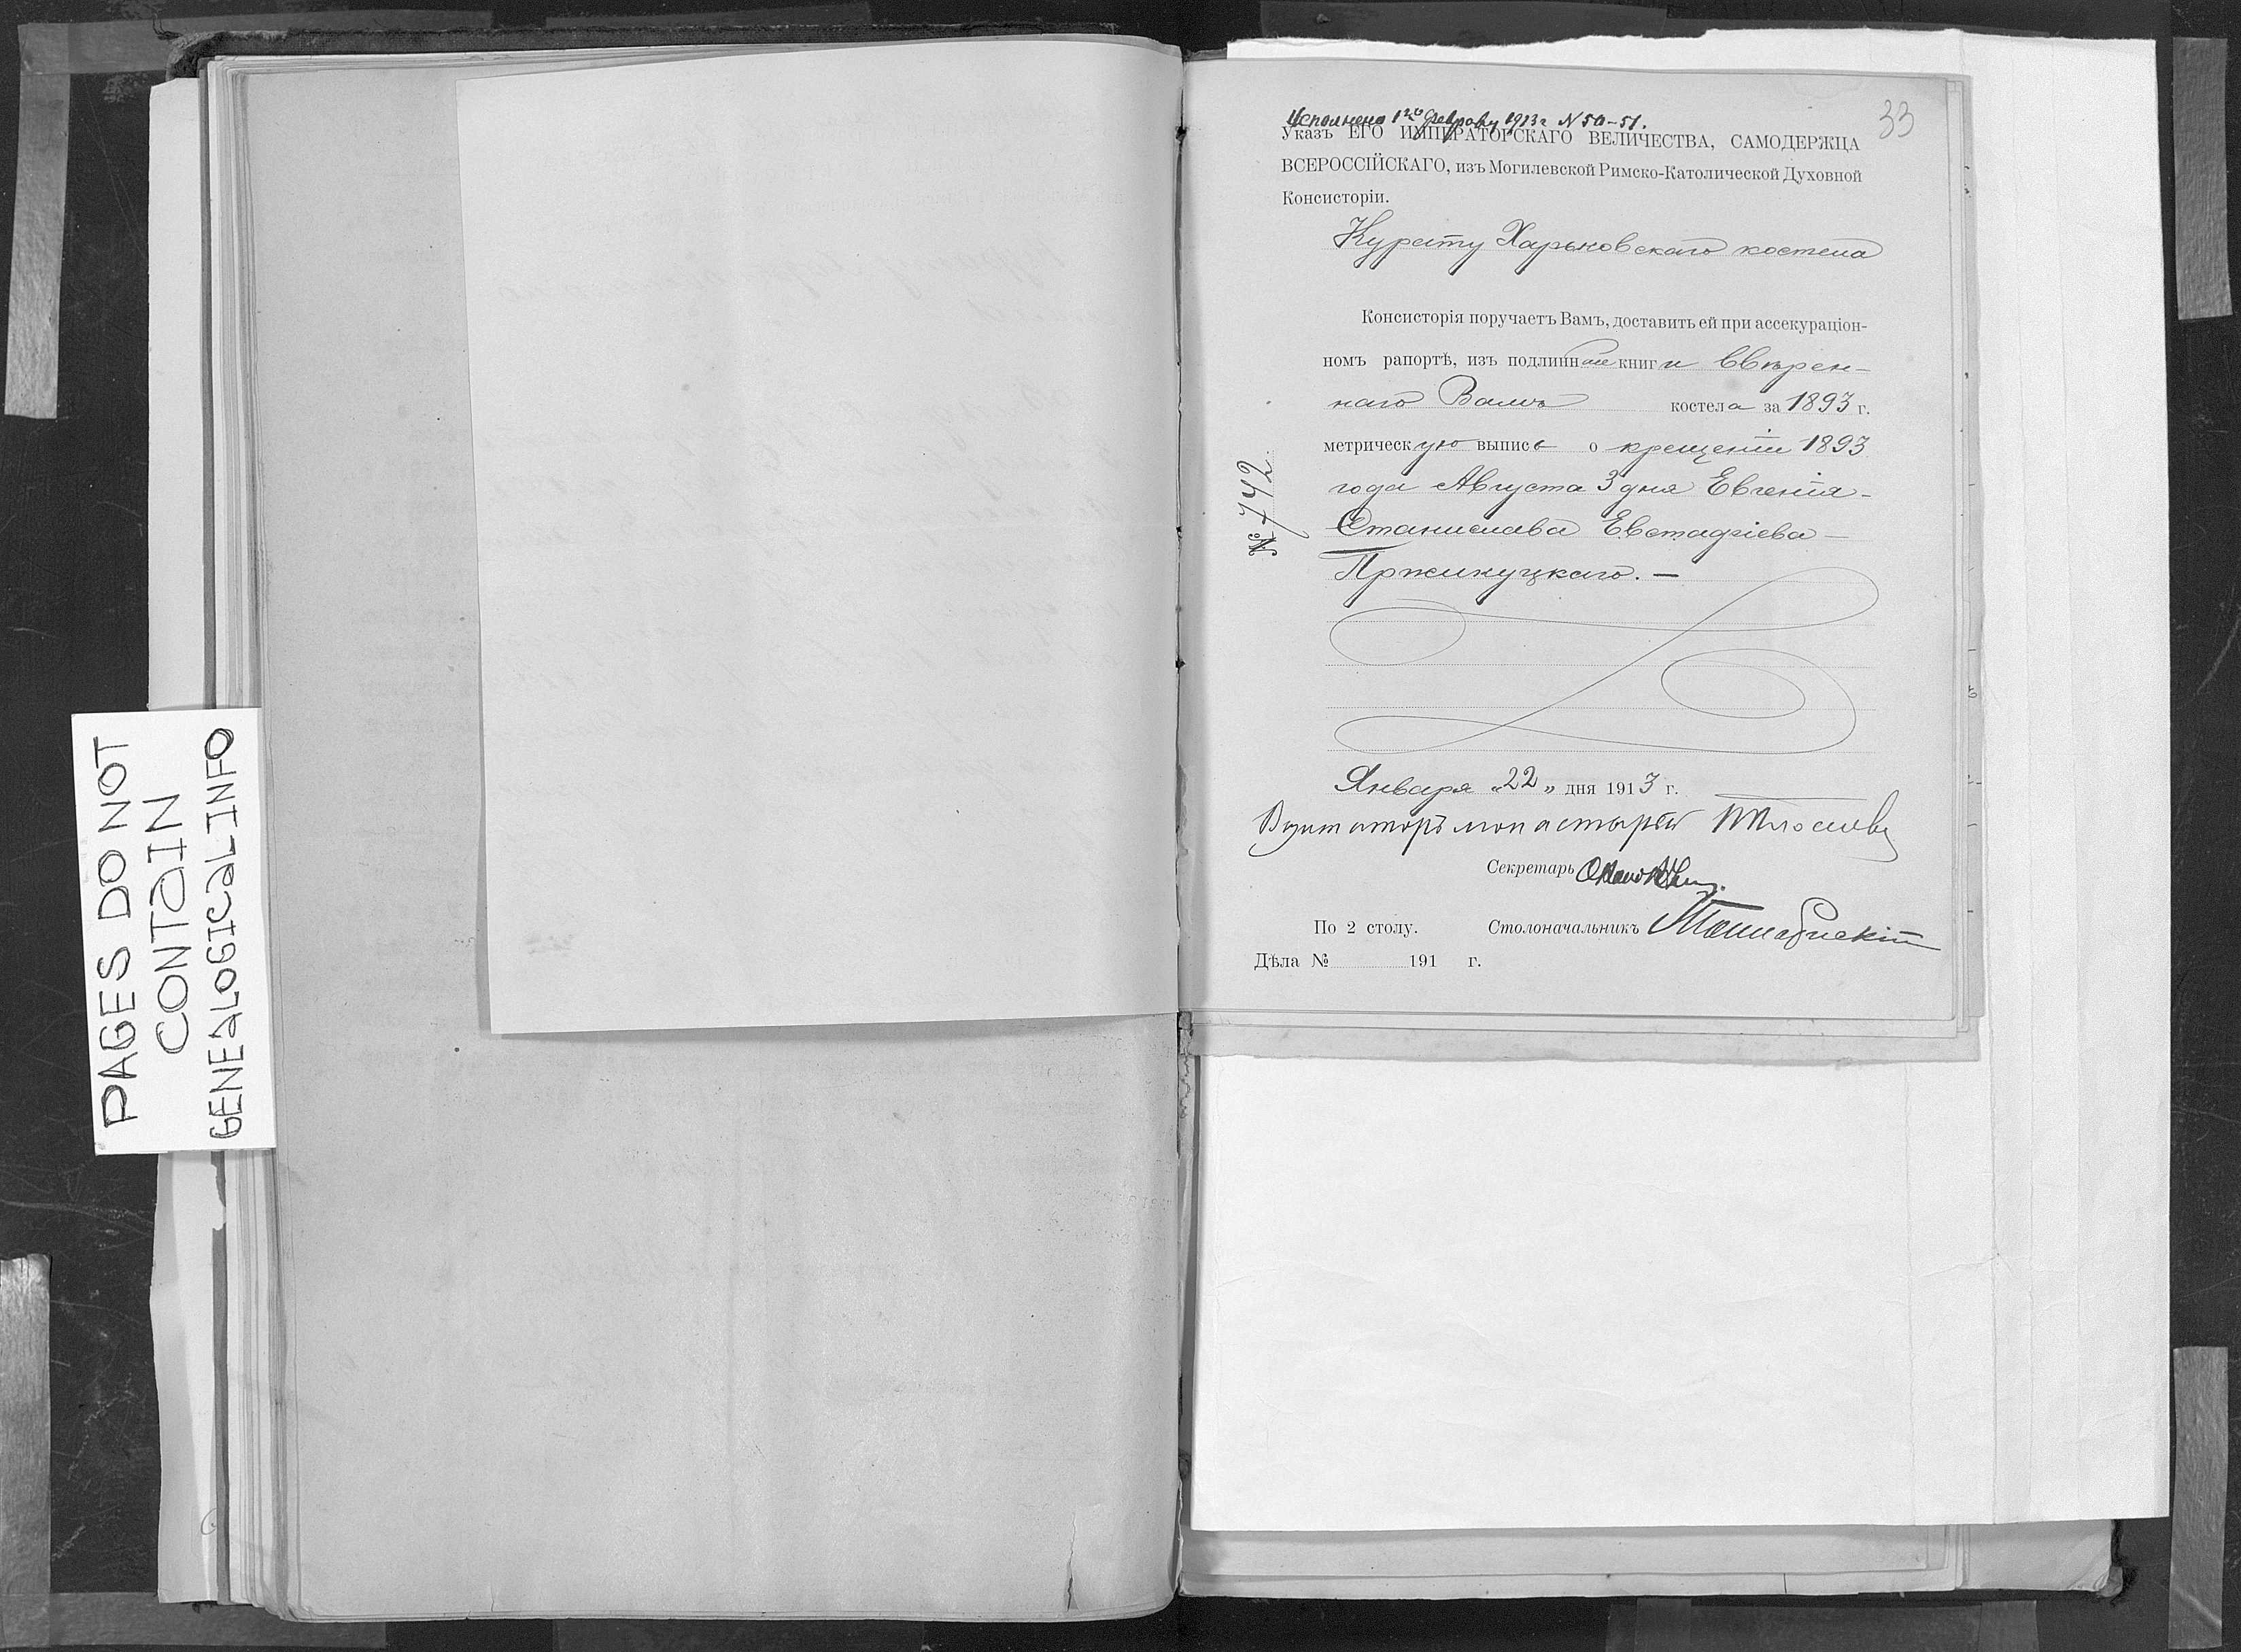 PAGES DO NOT
CONTAIN
GENEALOGICAL INFO
33
Исполнено 1го Февраля 1913 г N 50-51.
Указъ ЕГО ИМПЕРАТОРСКАГО ВЕЛИЧЕСТВА, САМОДЕРЖЦА
ВСЕРОССІЙСКАГО, изъ Могилевской Римско-Католической Духовной
Консисторіи.
Курату Харьковскаго костела
Консисторія поручаетъ Вамъ, доставить ей при ассекураціон-
номъ рапортѣ, изъ подлинной книги ввѣрен-
наго Вамъ костела за 1893 г.
метрическую выпись о крещеніи 1893
года Августа 3 дня Евгенія-
Станислава Евстафіева-
Пржилуцкаго. —
№ 742.
Января „22„ дня 1913 г.
Визитаторъ монастырей
Секретарь
По 2 столу. Столоначальникъ
Дѣла № 191 г.